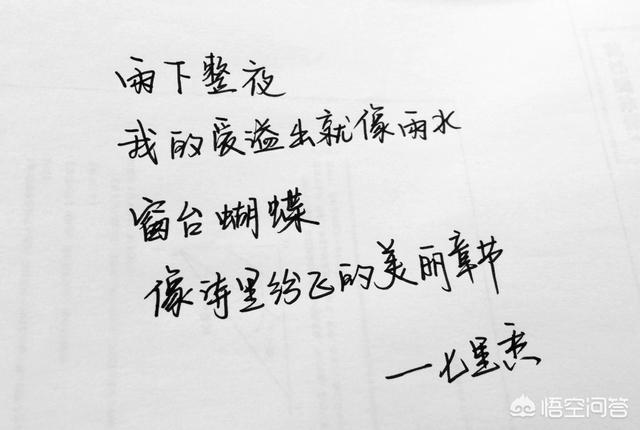 雨下整夜
我的爱溢出就像雨水
窗台蝴蝶
像诗里纷飞的美丽章节
—七里香
悟空问答